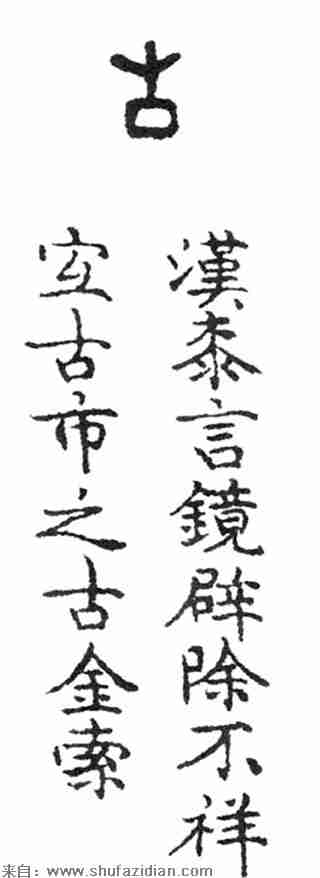 古
漢桼言鏡辟除不祥
宜古市之古金索
来自：www.shufazidian.com